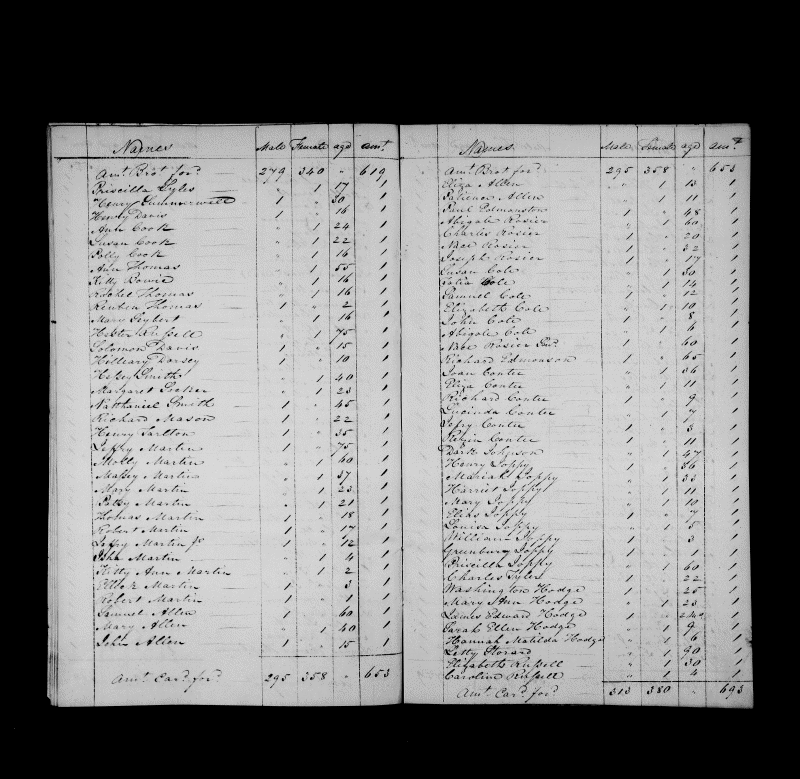 Names Male Female age amt.
Amt. Brot for. 279 340 " 619
Priscilla Lyles " 1 17 1
Henry Summerwell 1 " 30 1
Henry Davis 1 " 16 1
Ann Cook " 1 24 1
Susan Cook " 1 22 1
Polly Cook " 1 16 1
Ann Thomas " 1 55 1
Kitty Bowie " 1 16 1
Rachel Thomas " 1 16 1
Reuben Thomas 1 " 2 1
Mary Seybert " 1 16 1
Hester Russell " 1 75 1
Solomon Davis 1 " 15 1
Hilleary Dorsey 1 " 10 1
Hessy Smith " 1 40 1
Margaret " 1 23 1
Nathaniel Smith 1 " 45 1
Richard Mason 1 " 22 1
Henry Tarlton 1 " 35 1
Jeffry Martin 1 " 75 1
Molly Martin " 1 60 1
Massey Martin " 1 37 1
Mary Martin " 1 23 1
Patsy Martin " 1 21 1
Thomas Martin 1 " 18 1
Robert Martin 1 " 17 1
Jeffry Martin Jr 1 " 12 1
Martin " 1 4 1
Kitty Ann Martin " 1 2 1
Martin 1 " 3 1
Robert Martin 1 " 1 1
Samuel Allen 1 " 60 1
Mary Allen " 1 40 1
John Allen 1 " 15 1
Amt. Card. for. 295 358 " 653
Names Male Female age amt.
Amt. Brot for. 295 358 " 653
Eliza Allen " 1 13 1
Patience Allen " 1 11 1
Paul Edmonston 1 " 48 1
Abigale Rosier " 1 60 1
Charles Rosier 1 " 20 1
Nace Rosier 1 " 32 1
Joseph Rosier 1 " 17 1
Susan Cole " 1 30 1
Cole " 1 14 1
Samuel Cole 1 " 12 1
Elizabeth Cole " 1 10 1
John Cole 1 " 8 1
Abigale Cole " 1 6 1
Nace Rosier Senr. 1 " 60 1
Richard Edmonson 1 " 65 1
Joan Contee " 1 36 1
Eliza Contee " 1 11 1
Richard Contee 1 " 9 1
Lucinda Contee " 1 7 1
Jefry Contee 1 " 3 1
Rezin Contee 1 " 11 1
Dark Johnson " 1 47 1
Henry Toppy 1 " 36 1
Maria Toppy " 1 33 1
Harriet Toppy " 1 11 1
Mary Toppy " 1 10 1
Elias Toppy 1 " 7 1
Louisa Toppy " 1 5 1
William Toppy 1 " 3 1
Greenbury Toppy 1 " 1 1
Priscilla Toppy " 1 60 1
Charles Tyler 1 " 22 1
Washington Hodge 1 " 25 1
Mary Ann Hodge " 1 23 1
James Edward Hodge 1 " 2 1
Sarah Ellen Hodge " 1 9 1
Hannah Matilda Hodge " 1 6 1
Letty " 1 90 1
Elizabeth Russell " 1 30 1
Caroline Russell " 1 4 1
Amt. Card. for. 313 380 " 693